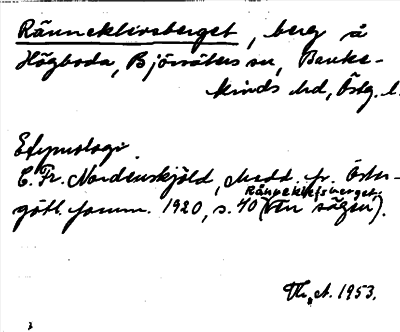 Ränneklivsberget, berg å
Högboda, Björsäters sn, Banke-
kinds hd, Östg. l.
Etymologi.
C. Fr. Nordenskjöld, Medd. fr. Öster-
götl. fornm. 1920, s. 40 (Rännekleifsberget, En sägen).
1953.